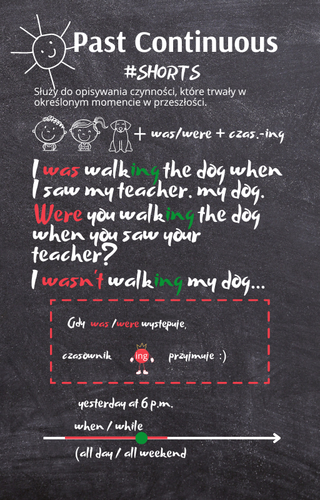 Past Continuous
#SHORTS
Służy do opisywania czynności, które trwały w
określonym momencie w przeszłości.
+ was/were + czas.-ing
I was walking the dog when
I saw my teacher. my dog.
Were you walking the dog
when you saw your
teacher?
I wasn't walking my dog...
Gdy was/were występuje,
czasownik ing przyjmuje :)
yesterday at 6 p.m.
when / while
(all day / all weekend